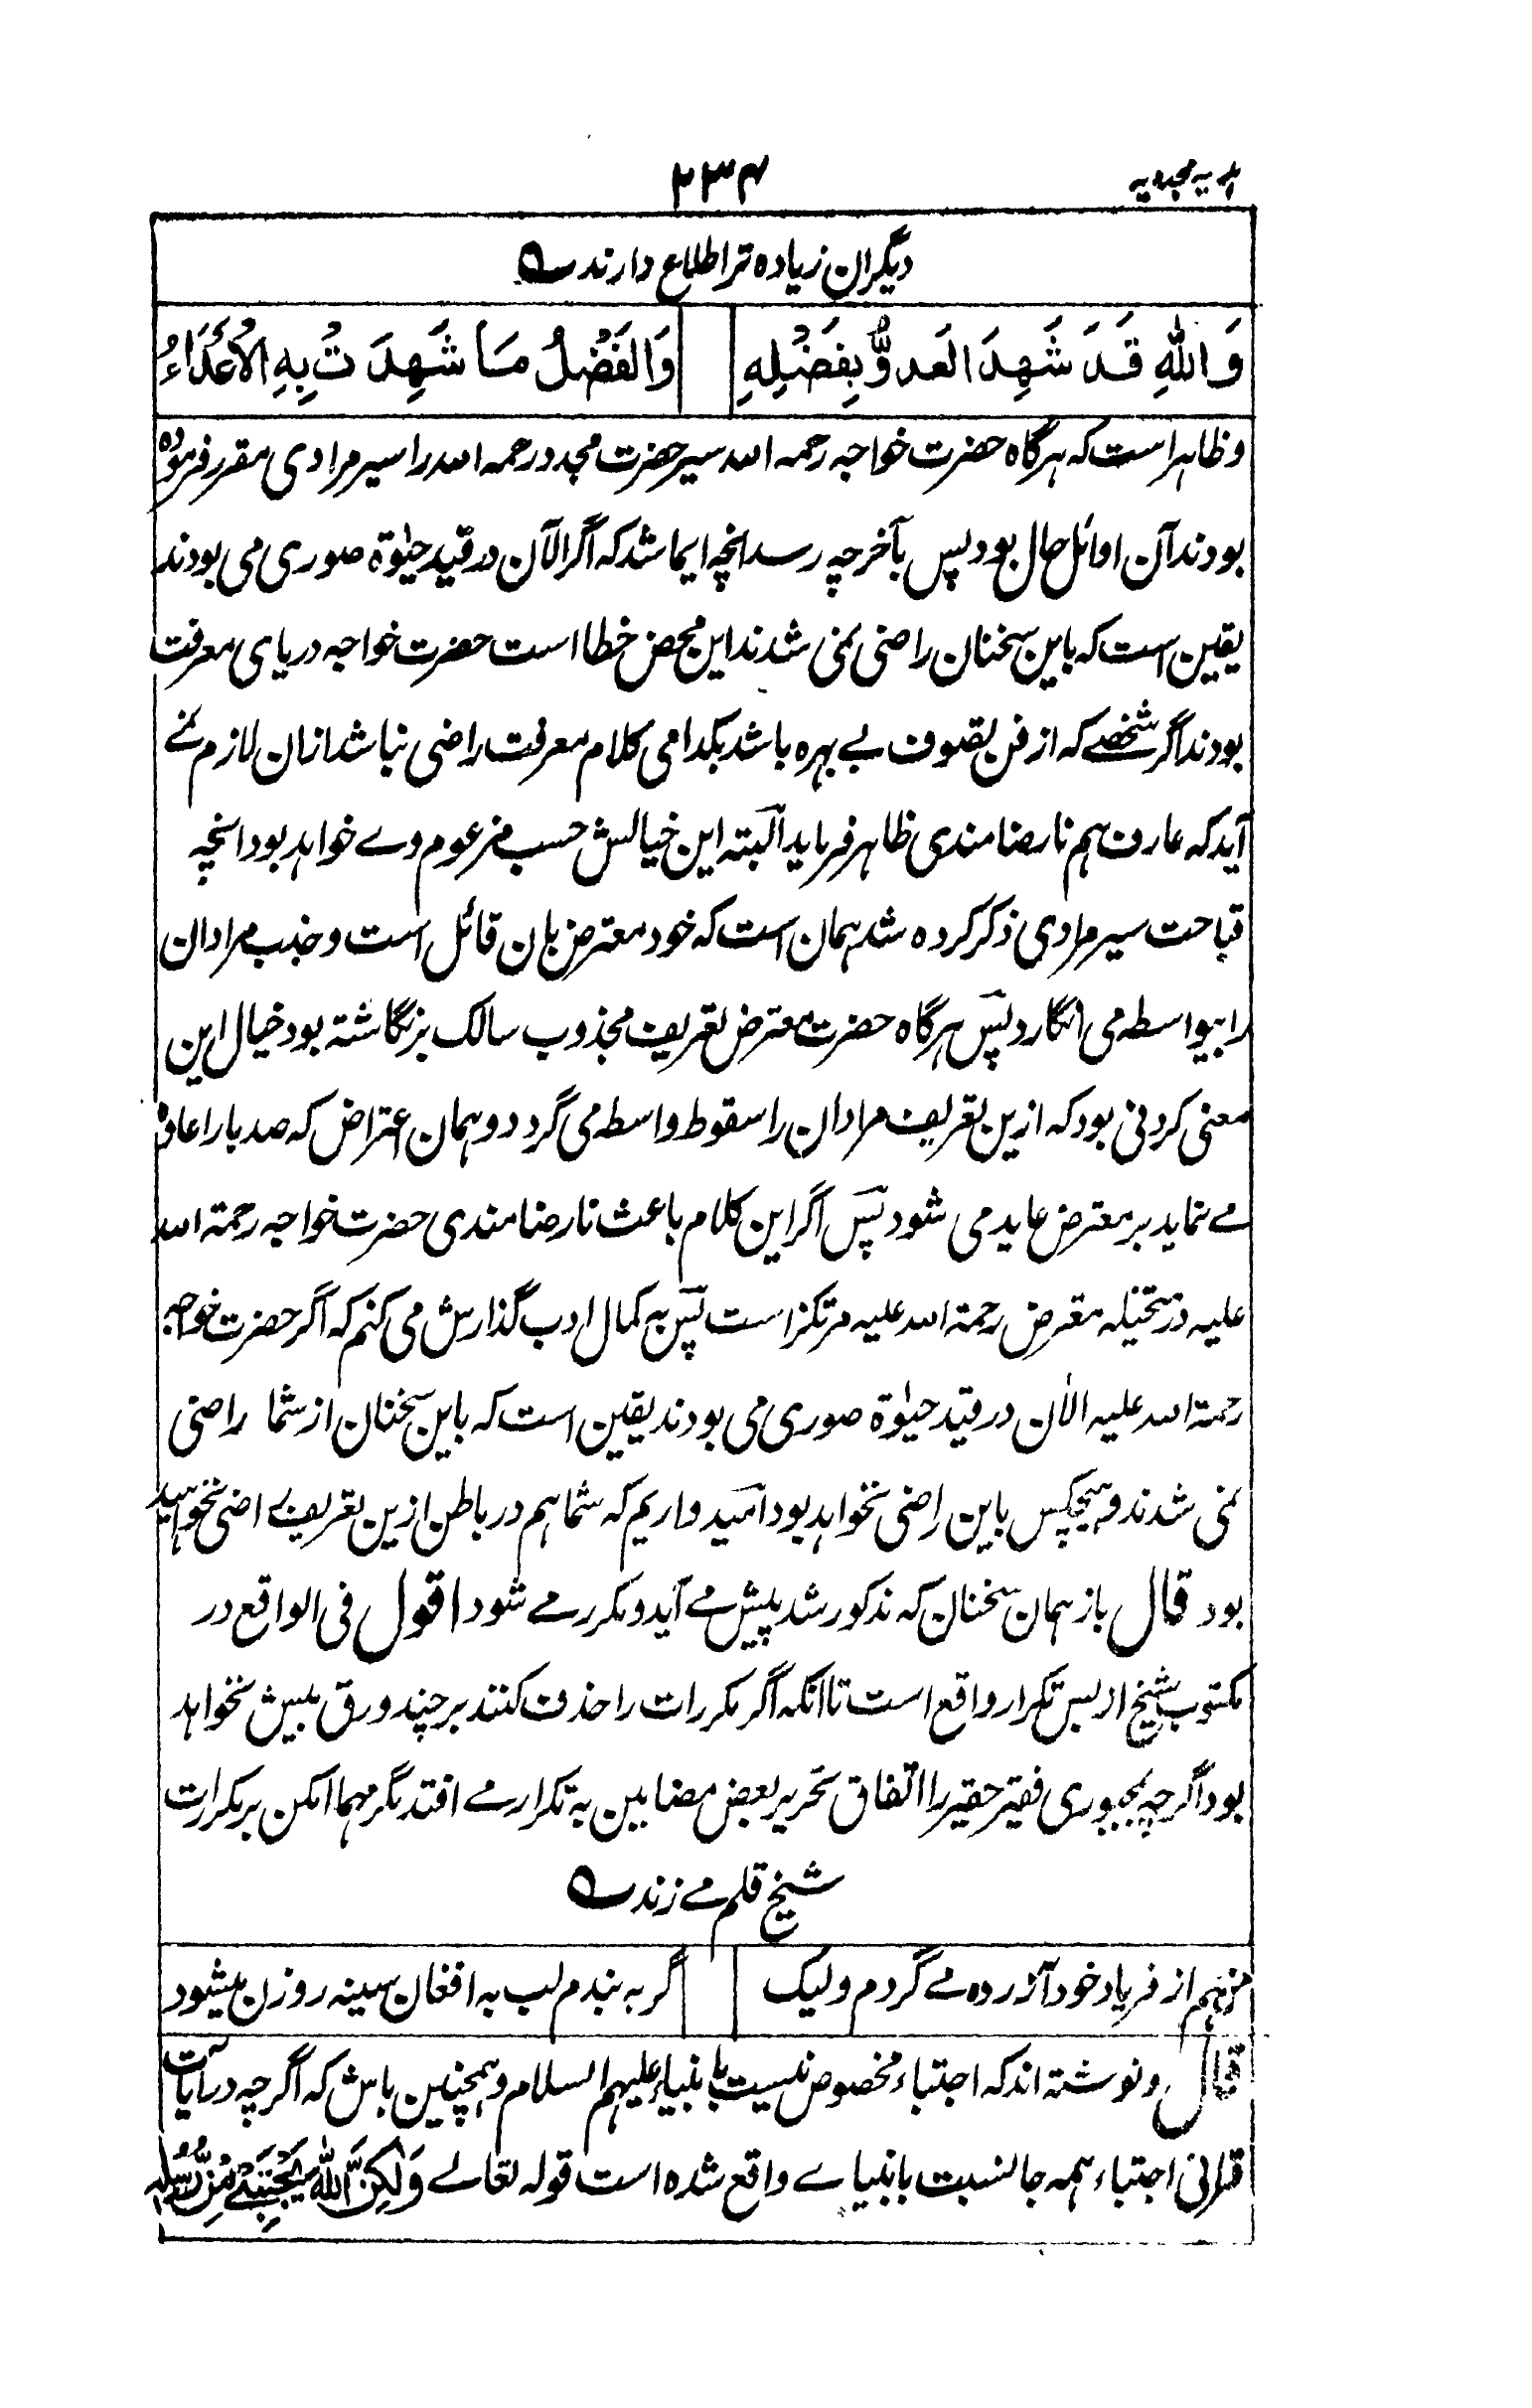 ہدیہ مجددیہ
۲۳۴
دیگران زیادہ تر اطلاع دارند ؎
وَاللّٰهِ قَدَ شَهِدَ العَدوُّ بِفَضْلِهِ وَالفَضْلُ مَا شَهِدَتْ بِهِ الاَعْدَاءُ
وظاہر است کہ ہرگاہ حضرت خواجہ رحمہ اللہ سیر حضرت مجدد رحمہ اللہ را سیر مرادی مقرر فرمودہ
بودند آن اوائل حال بود پس بآخر چہ رسد انچہ ایما شد کہ اگر الآن در قید حیوٰۃ صوری می بودند
یقین است کہ باین سخنان راضی نمی شدند این محض خطا است حضرت خواجہ دریای معرفت
بودند اگر شخصے کہ از فن تصوف بے بہرہ باشد بکدامی کلام معرفت راضی نباشد ازان لازم نمے
آید کہ عارف ہم نارضامندی ظاہر فرماید البتہ این خیالش حسب مزعوم وے خواہد بود انچہ
قباحت سیر مرادی ذکر کردہ شد ہمان است کہ خود معترض بان قائل است و جذب مرادان
را بیواسطہ می انگارد پس ہرگاہ حضرت معترض تعریف مجذوب سالک بزنگاشتہ بود خیال این
معنی کردنی بود کہ ازین تعریف مرادان را سقوط واسطہ می گردد و ہمان اعتراض کہ صد بار اعادہ
مے نماید بر معترض عاید می شود پس اگر این کلام باعث نارضامندی حضرت خواجہ رحمۃ اللہ
علیہ در متخیلہ معترض رحمۃ اللہ علیہ مرتکز است پس بہ کمال ادب گذارش می کنم کہ اگر حضرت خواجہ
رحمۃ اللہ علیہ الاٰن در قید حیوٰۃ صوری می بودند یقین است کہ باین سخنان از شما راضی
نمی شدند و ہیچکس باین راضی نخواہد بود امید داریم کہ شما ہم در باطن ازین تعریف راضی نخواہید
بود قال باز ہمان سخنان کہ مذکور شد پیش مے آید و مکرر مے شود اقول فی الواقع در
مکتوب شیخ از بس تکرار واقع است تا انکہ اگر مکررات را حذف کنند بر چند ورق بیش نخواہد
بود اگرچہ بمجبوری فقیر حقیر را اتفاق تحریر بعض مضامین بہ تکرار مے افتد مگر مہما امکن بر مکررات
شیخ قلم مے زند ؎
من ہم از فریاد خود آزردہ مے گردم ولیک گر بہ بندم لب بہ افغان سینہ روزن میشود
قال و نوشتہ اند کہ اجتباء مخصوص نیست بانبیاء علیہم السلام و ہمچنین باش کہ اگرچہ در آیات
قرانی اجتباء ہمہ جا نسبت بانبیاے واقع شدہ است قولہ تعالے وَلٰكِنَّ اللّٰهَ يَجْتَبِيْ مِنْ رُّسُلِهٖ